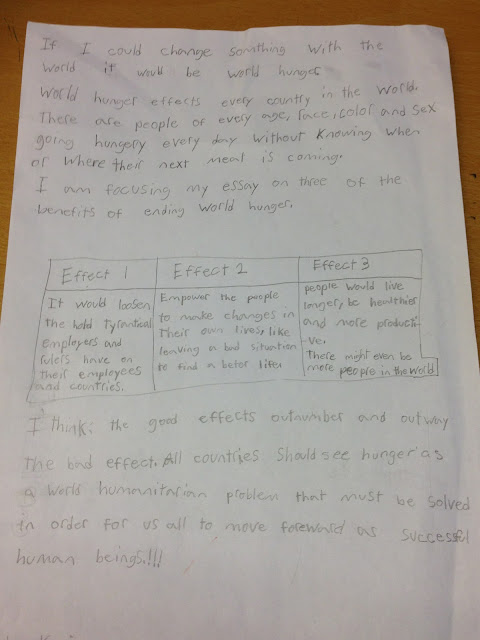 If I could change somthing with the
world it would be world hunger.
World hunger effects every country in the world.
There are people of every age, race, color and sex
going hungery every day without knowing when
or where their next meal is coming.
I am focusing my essay on three of the
benefits of ending world hunger.
Effect 1
It would loosen
the hold tyrantical
employers and
rulers have on
their employees
and countries.
Effect 2
Empower the people
to make changes in
their own lives, like
leaving a bad situation
to find a better life.
Effect 3
people would live
longer, be healthier
and more producti-
ve.
There might even be
more people in the world
I think: the good effects outnumber and outway
the bad effect. All countries should see hunger as
a world humanitarian problem that must be solved
in order for us all to move foreward as successful
human beings.!!!